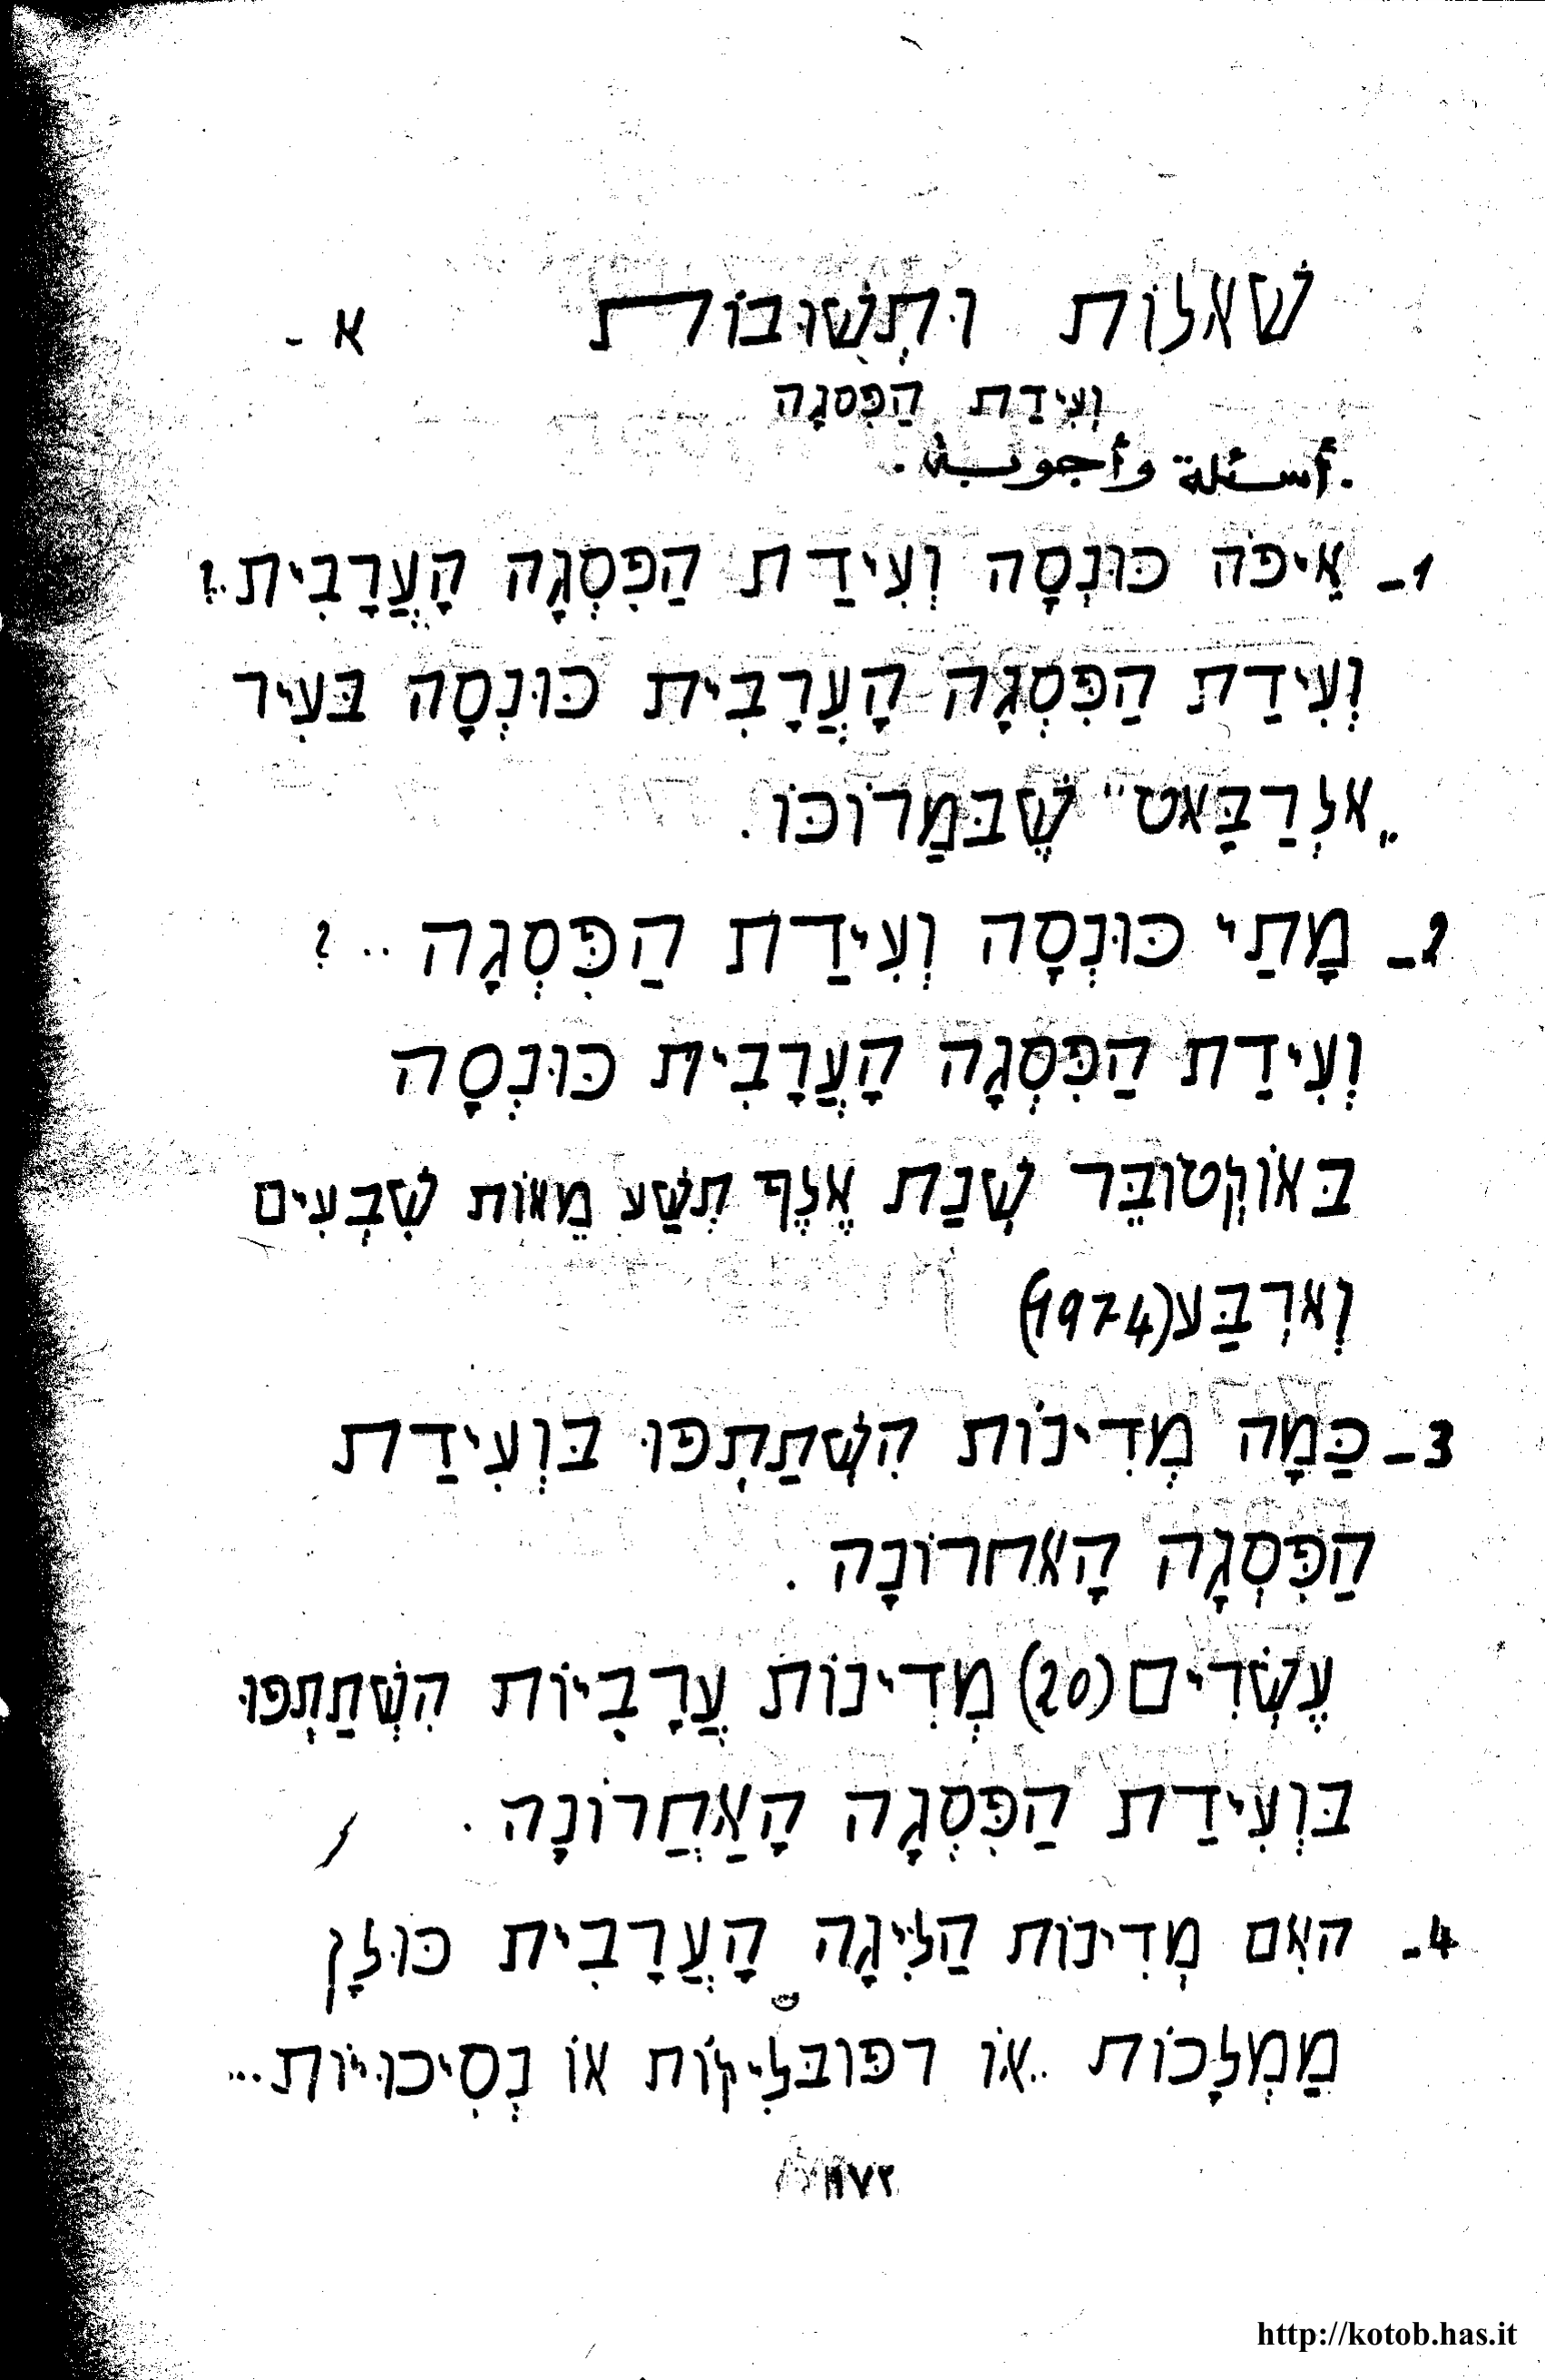 שאלוֹת וּתְשׁוּבוֹת א -
וְעִידַת הַפִּסגָה
.أسئلة وأجوبة.
1- אֵיפֹה כּוּנְסָה וְעִידַת הַפִסְגָה הָעֲרָבִית..?
וְעִידַת הַפִּסְגָה הָעֲרָבִית כּוּנְסָה בּעִיר
„אלְרַבָּאט" שֶׁבּמַרוֹכּוֹ.
2- מָתַי כּוּנְסָה וְעִידַת הַפִּסְגָה ..?
וְעִידַת הַפִּסְגָה הָעֲרָבִית כּוּנְסָה
בּאוֹקְטוֹבֶּר שְׁנַת אֶלֶף תְשַׁע מֵאוֹת שִׁבְעִים
וְארְבַּע(1974)
3- כַּמָה מְדִינוֹת הִשְׁתַתְפוּ בּוְעִידַת
הַפִּסְגָה הָאחרוֹנָה .
עֶשְׂרִים(20) מְדִינוֹת עֲרָבִיוֹת הִשְׁתַתְפוּ
בּוְעִידַת הַפִּסְגָה הָאַחֲרוֹנָה .
4- האִם מְדִינוֹת הַלִּיגָה הָעֲרָבִית כּוּלָן
מַמְלָכוֹת ..אוֹ רפּוּבּלִיקוֹת אוֹ נְסִיכוּיוֹת...
١٧٢
http://kotob.has.it